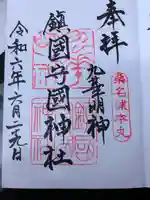 奉拝
桑名城本丸
九華明神
鎮國守國神社
令和六年六月二九日